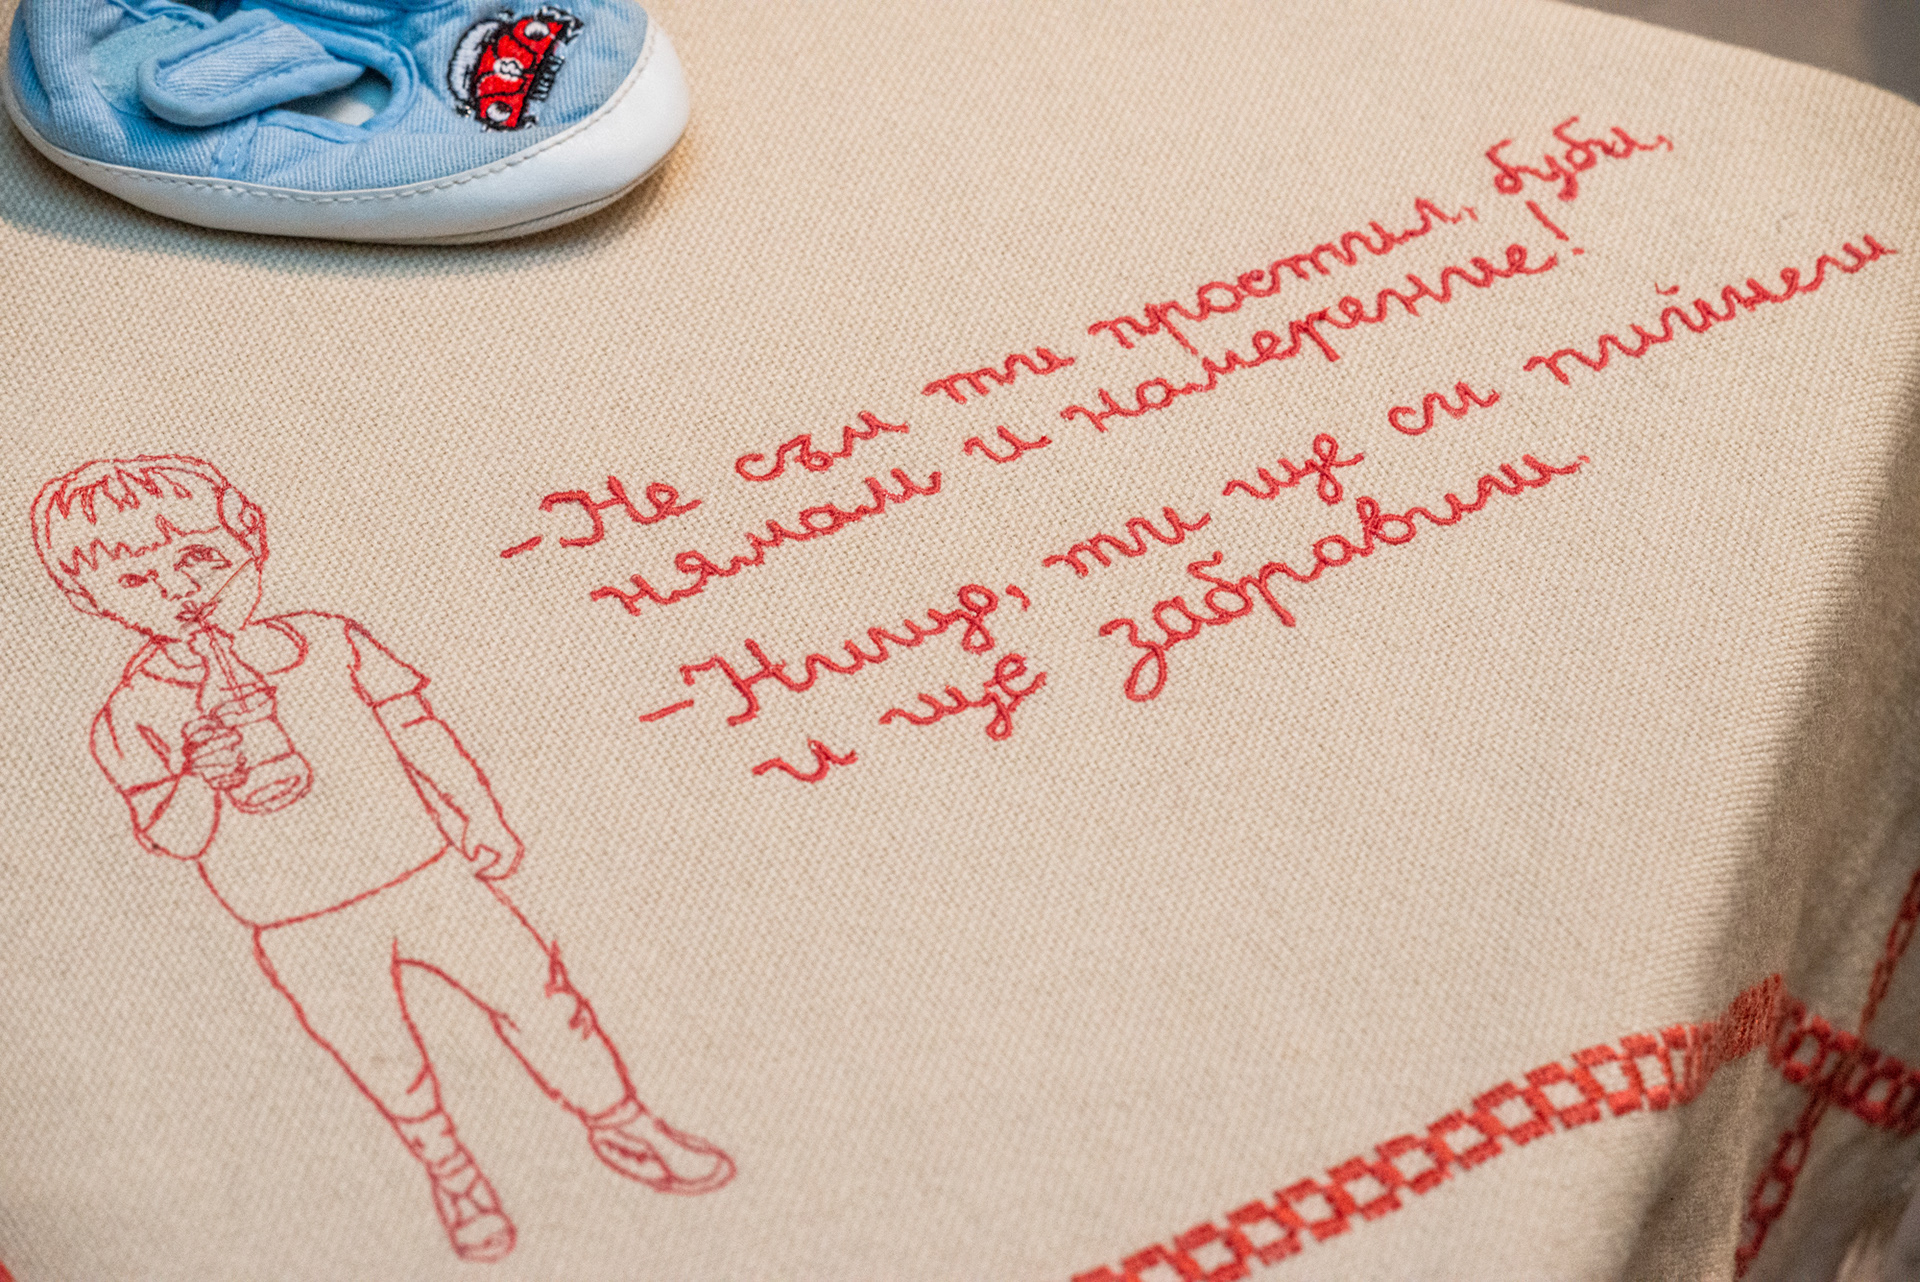 -Не съм ти простил, буби,
нямам и намерение!
-Нищо, ти ще си пийнеш
и ще забравиш.